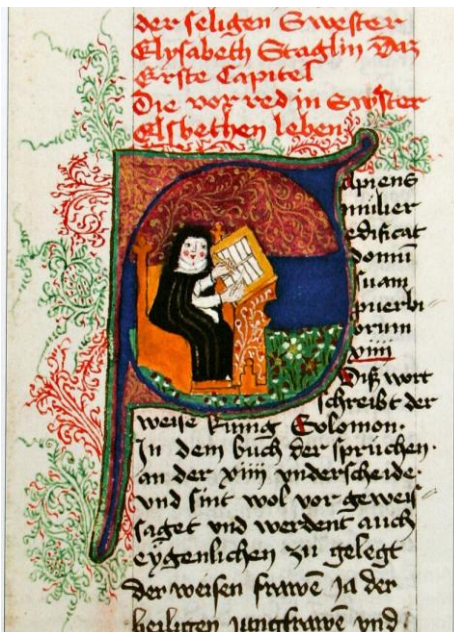 der seligen Swester
Elysabeth Staglin Daz
Erste Capitel
Die vor red in Swester
Elsbethen leben
Sapiens
mulier
edificat
domū
suam
ꝓuerbi
orum
xiiii
Diß wort
schreibt der
weise kunig Salomon.
In dem buch der sprüchen.
an der xiiii vnderscheide.
vnd sint wol vor geweis
saget vnd werdent auch
eygenlichen zu gelegt
der weisen frawē Ja der
heiligen iungfrawē vnd.